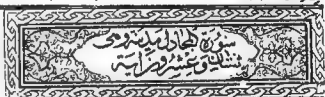 سورة المجادلة مدنية وهى
ثنتان وعشرون آية